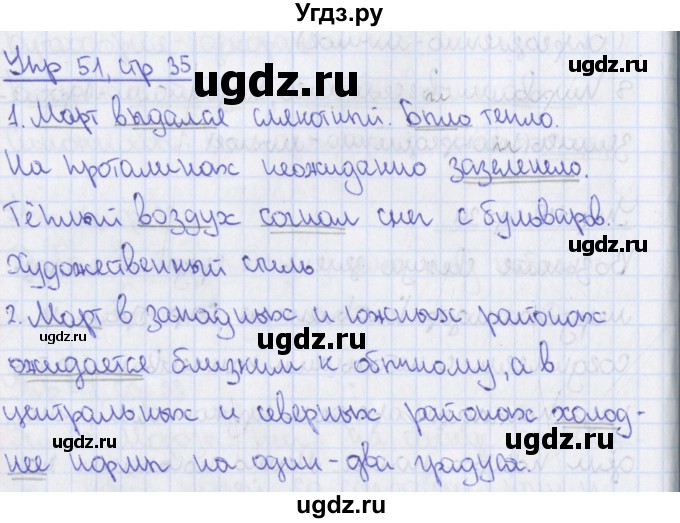 Угдз.ру
Упр 51, стр 35
ugdz.ru
ugdz.ru
1. Март выдался слякотный. Было тепло.
На проталинах неожиданно зазеленело.
ugdz.ru
ugdz.ru
Тёплый воздух согнал снег с бульваров.
ugdz.ru
Художественный стиль
ugdz.ru
2. Март в западных и южных районах
ugdz.ru
ugdz.ru
ожидается близким к обычному, а в
центральных и северных районах холод-
ugdz.ru
ugdz.ru
нее нормы на один-два градуса.
ugdz.ru